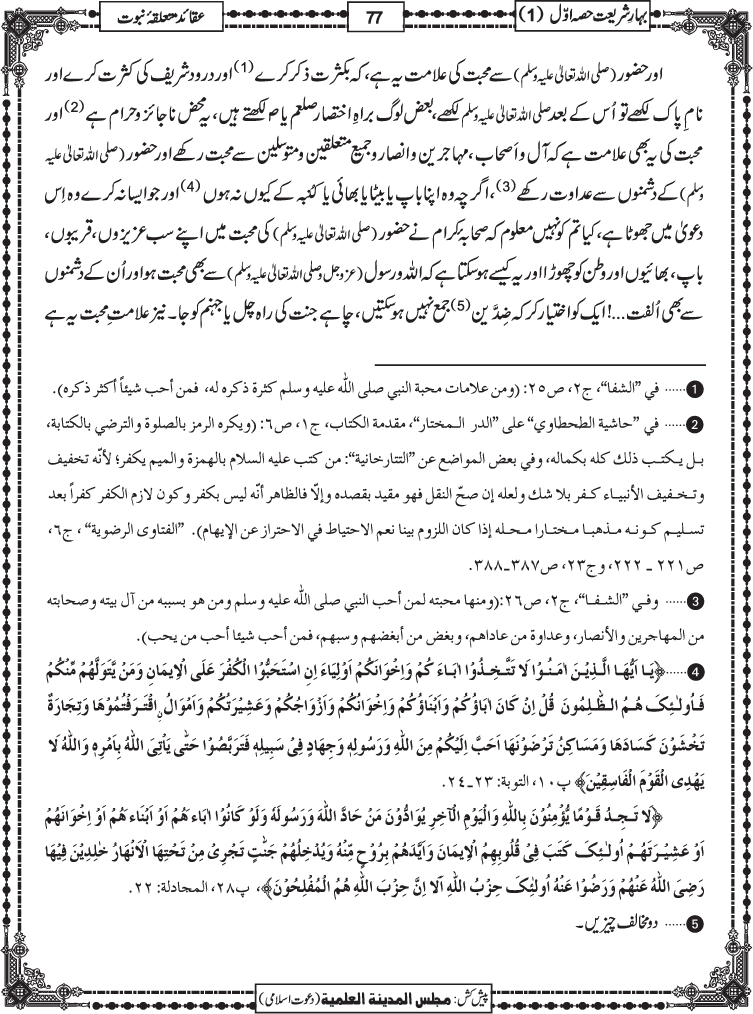 بہارِ شریعت حصہ اوّل (1)
77
عقائد متعلقۂ نبوت
اور حضور (صلی اللہ تعالیٰ علیہ وسلم) سے محبت کی علامت یہ ہے، کہ بکثرت ذکر کرے (1) اور درود شریف کی کثرت کرے اور
نامِ پاک لکھے تو اُس کے بعد صلی اللہ تعالیٰ علیہ وسلم لکھے، بعض لوگ براہِ اختصار صلعم یا ؐ لکھتے ہیں، یہ محض ناجائز و حرام ہے (2) اور
محبت کی یہ بھی علامت ہے کہ آل و اَصحاب، مہاجرین و انصار و جمیع متعلقین و متوسلین سے محبت رکھے اور حضور (صلی اللہ تعالیٰ علیہ
وسلم) کے دشمنوں سے عداوت رکھے (3)، اگرچہ وہ اپنا باپ یا بیٹا یا بھائی یا کُنبہ کے کیوں نہ ہوں (4) اور جو ایسا نہ کرے وہ اِس
دعویٰ میں جھوٹا ہے، کیا تم کو نہیں معلوم کہ صحابۂ کرام نے حضور (صلی اللہ تعالیٰ علیہ وسلم) کی محبت میں اپنے سب عزیزوں، قریبوں،
باپ، بھائیوں اور وطن کو چھوڑا اور یہ کیسے ہو سکتا ہے کہ اللہ و رسول (عزوجل و صلی اللہ تعالیٰ علیہ وسلم) سے بھی محبت ہو اور اُن کے دشمنوں
سے بھی اُلفت...! ایک کو اختیار کر کہ ضِدَّین (5) جمع نہیں ہو سکتیں، چاہے جنت کی راہ چل یا جہنم کو جا۔ نیز علامتِ محبت یہ ہے
1 ...... في ”الشفا“، ج٢، ص٢٥: (ومن علامات محبة النبي صلى اللّٰه عليه وسلم كثرة ذكره له، فمن أحب شيئاً أكثر ذكره).
2 ...... في ”حاشية الطحطاوي“ على ”الدر المختار“، مقدمة الكتاب، ج١، ص٦: (ويكره الرمز بالصلوة والترضي بالكتابة،
بل يكتب ذلك كله بكماله، وفي بعض المواضع عن ”التتارخانية“: من كتب عليه السلام بالهمزة والميم يكفر؛ لأنّه تخفيف
وتخفيف الأنبياء كفر بلا شك ولعله إن صحّ النقل فهو مقيد بقصده وإلّا فالظاهر أنّه ليس بكفر وكون لازم الكفر كفراً بعد
تسليم كونه مذهبا مختارا محله إذا كان اللزوم بينا نعم الاحتياط في الاحتراز عن الإيهام). ”الفتاوى الرضوية“ ، ج٦،
ص٢٢١ ـ ٢٢٢، وج٢٣، ص٣٨٧ـ٣٨٨.
3 ...... وفي ”الشفا“، ج٢، ص٢٦:(ومنها محبته لمن أحب النبي صلى اللّٰه عليه وسلم ومن هو بسببه من آل بيته وصحابته
من المهاجرين والأنصار، وعداوة من عاداهم، وبغض من أبغضهم وسبهم، فمن أحب شيئا أحب من يحب).
4 ...... ﴿یَا اَیُّهَا الَّذِیْنَ اٰمَنُوْا لَا تَتَّخِذُوْا اٰبَاءَ كُمْ وَاِخْوَانَكُمْ اَوْلِيَاءَ اِنِ اسْتَحَبُّوا الْكُفْرَ عَلَى الْاِيْمَانِ وَمَنْ يَّتَوَلَّهُمْ مِّنْكُمْ
فَاُولٰئِكَ هُمُ الظّٰلِمُوْنَ قُلْ اِنْ كَانَ اٰبَاؤُكُمْ وَاَبْنَاؤُكُمْ وَاِخْوَانُكُمْ وَاَزْوَاجُكُمْ وَعَشِيْرَتُكُمْ وَاَمْوَالُ ۨاقْتَرَفْتُمُوْهَا وَتِجَارَةٌ
تَخْشَوْنَ كَسَادَهَا وَمَسَاكِنُ تَرْضَوْنَهَا اَحَبَّ اِلَيْكُمْ مِنَ اللّٰهِ وَرَسُوْلِهٖ وَجِهَادٍ فِیْ سَبِيْلِهٖ فَتَرَبَّصُوْا حَتّٰى يَاْتِیَ اللّٰهُ بِاَمْرِهٖ وَاللّٰهُ لَا
يَهْدِی الْقَوْمَ الْفَاسِقِيْنَ﴾ پ١٠، التوبة: ٢٣ـ٢٤.
﴿لَا تَجِدُ قَوْمًا يُّؤْمِنُوْنَ بِاللّٰهِ وَالْيَوْمِ الْاٰخِرِ يُوَادُّوْنَ مَنْ حَادَّ اللّٰهَ وَرَسُوْلَهٗ وَلَوْ كَانُوْا اٰبَاءَ هُمْ اَوْ اَبْنَاءَ هُمْ اَوْ اِخْوَانَهُمْ
اَوْ عَشِيْرَتَهُمْ اُولٰئِكَ كَتَبَ فِیْ قُلُوْبِهِمُ الْاِيْمَانَ وَاَيَّدَهُمْ بِرُوْحٍ مِّنْهُ وَيُدْخِلُهُمْ جَنّٰتٍ تَجْرِیْ مِنْ تَحْتِهَا الْاَنْهَارُ خٰلِدِيْنَ فِيْهَا
رَضِیَ اللّٰهُ عَنْهُمْ وَرَضُوْا عَنْهُ اُولٰئِكَ حِزْبُ اللّٰهِ اَلَا اِنَّ حِزْبَ اللّٰهِ هُمُ الْمُفْلِحُوْنَ﴾، پ٢٨، المجادلة: ٢٢.
5 ...... دو مخالف چیزیں۔
پیش کش: مجلس المدينة العلمية (دعوتِ اسلامی)